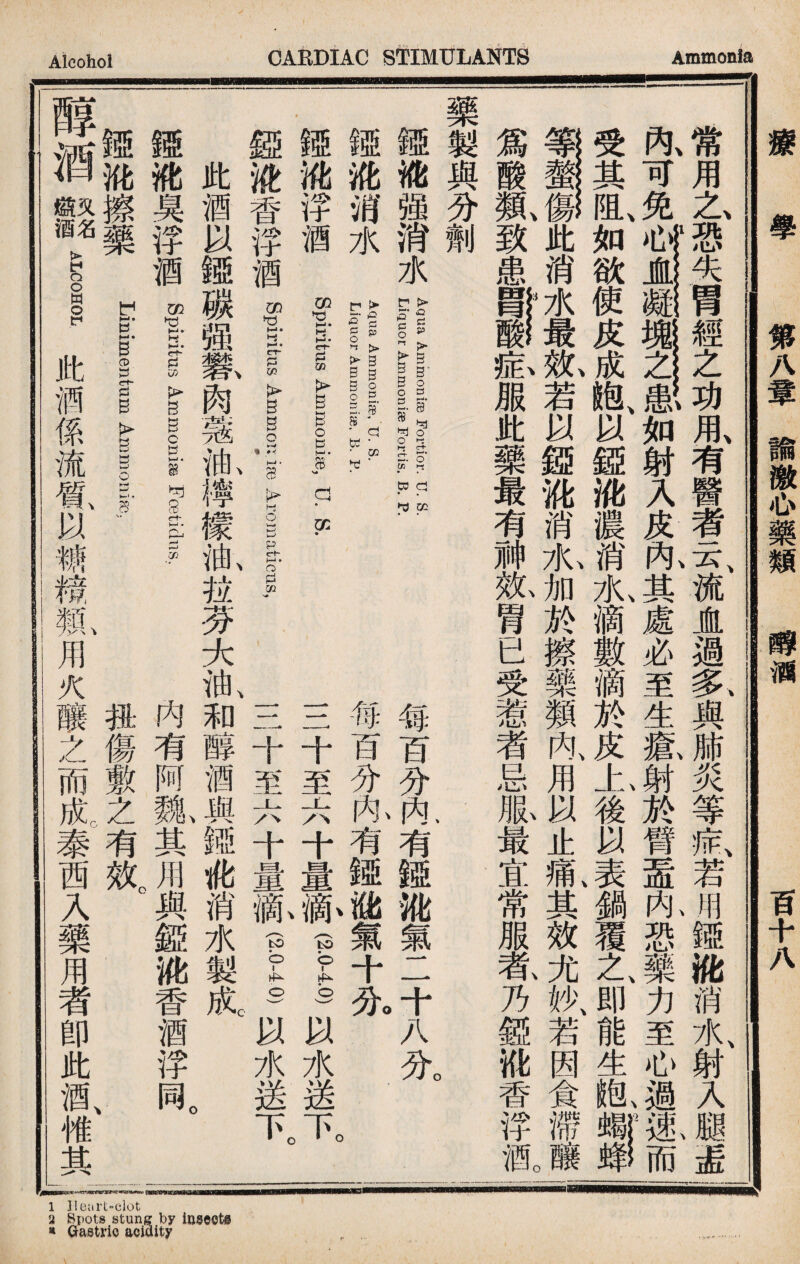 Alcohol CARDIAC STIMULANTS Ammonia
療學 第八章 論激心藥類 醇酒 百十八
常用之、恐失胃經之功用、有醫者云、流血過多、與肺炎等症、若用錏㳸消水、射入腿盂
內、可免心血凝塊之患、如射入皮內、其處必至生瘡、射於臂盂內、恐藥力至心過速、而
受其阻、如欲使皮成皰、以錏㳸濃消水、滴數滴於皮上、後以表鍋覆之、即能生皰、蝎蜂
等螫傷此消水最效、若以錏㳸消水、加於擦藥類內、用以止痛、其效尤妙、若因食滯釀
爲酸類、致患胃酸症、服此藥最有神效、胃已受惹者忌服、最宜常服者、乃錏㳸香浮酒。
藥製與分劑
錏㳸强消水 Aqua Ammoniæ Fortior. U. S. Liquor Ammoniæ Fortis. B. P. 每百分內、有錏㳸氣二十八分。
錏㳸消水 Aqua Ammoniæ, U. S. Liquor Ammoniæ. B. P. 每百分內、有錏㳸氣十分。
錏㳸浮酒 Spiritus Ammoniæ, U. S. 三十至六十量滴、(2.0–4.0) 以水送下。
錏㳸香浮酒 Spiritus Ammoniæ Aromaticus, 三十至六十量滴、(2.0–4.0) 以水送下。
此酒以錏碳强礬、肉蔻油、檸檬油、拉芬大油、和醇酒與錏㳸消水製成。
錏㳸臭浮酒 Spiritus Ammoniæ Fœtidus. 內有阿魏、其用與錏㳸香酒浮同。
錏㳸擦藥 Linimentum Ammoniæ. 扭傷敷之有效。
醇酒 又名燄酒 ALCOHOL 此酒係流質、以糖糝類、用火釀之而成。泰西入藥用者即此酒、惟其
1 Heart-clot
2 Spots stung by insects
* Gastric acidity